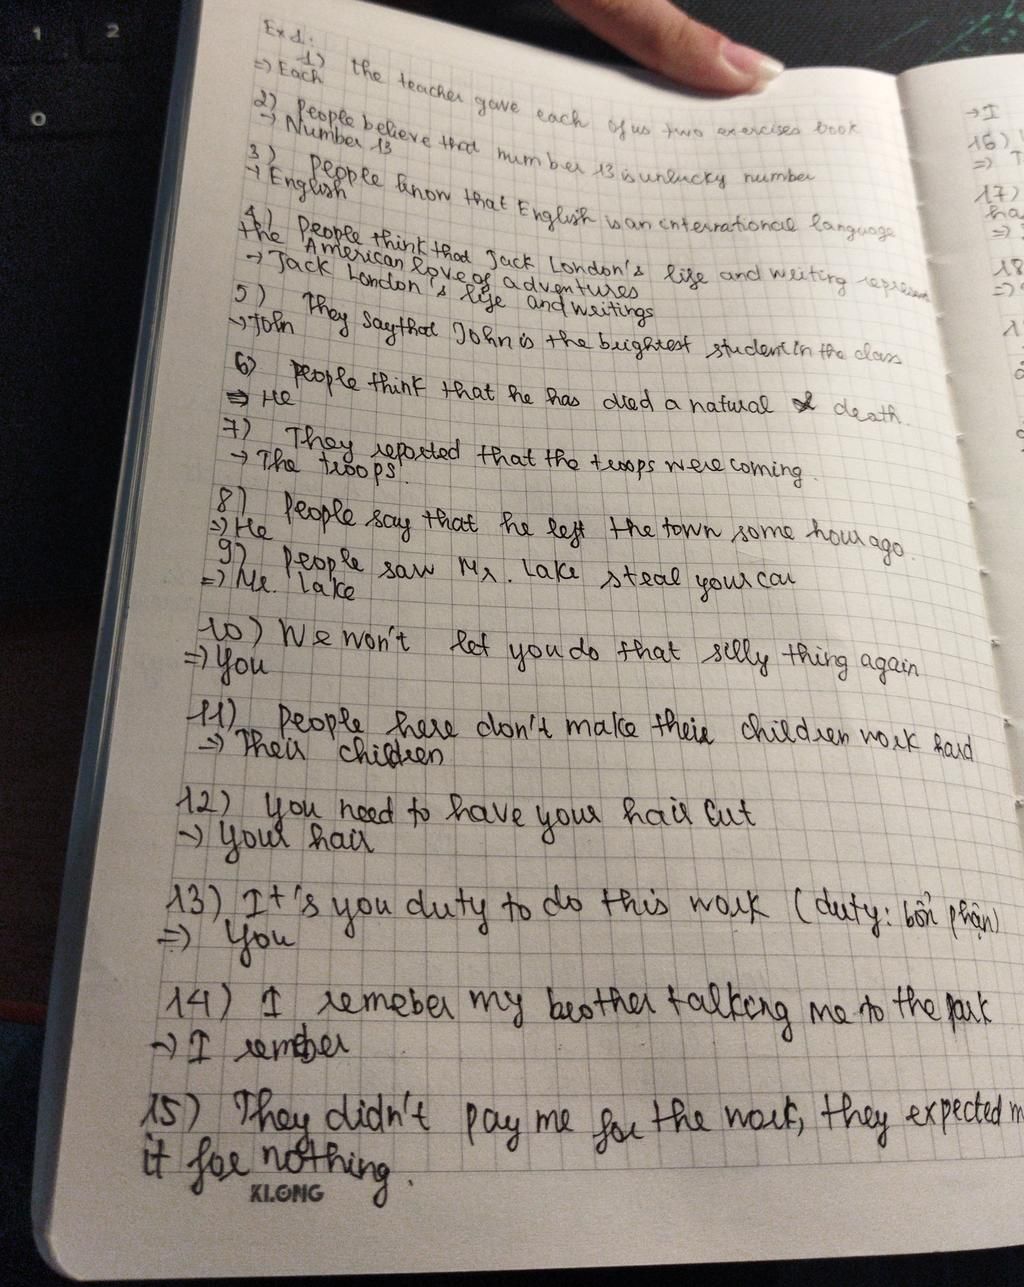 1 2
0
Ex 1:
1) the teacher gave each of us two exercises book
=> Each
2) People believe that number 13 is unlucky number
→ Number 13
3) people know that English is an international language
→ English
4) People think that Jack London's life and writing represent
the American love of adventures
→ Jack London's life and writings
5) They say that John is the brightest student in the class
→ John
6) people think that he has died a natural death.
=> He
7) They reported that the troops were coming.
→ The troops.
8) People say that he left the town some hour ago.
=> He
9) people saw Mr. Lake steal your car
=> Mr. Lake
10) We won't let you do that silly thing again
=> You
11) people here don't make their children work hard
→ Their children
12) you need to have your hair cut
→ your hair
13) It's you duty to do this work (duty: bổn phận)
=> you
14) I remeber my brother talking me to the park
→ I rember
15) They didn't pay me for the work, they expected m
it for nothing.
KLONG
→ I
16)
=> T
17)
ha
=>
18
=>